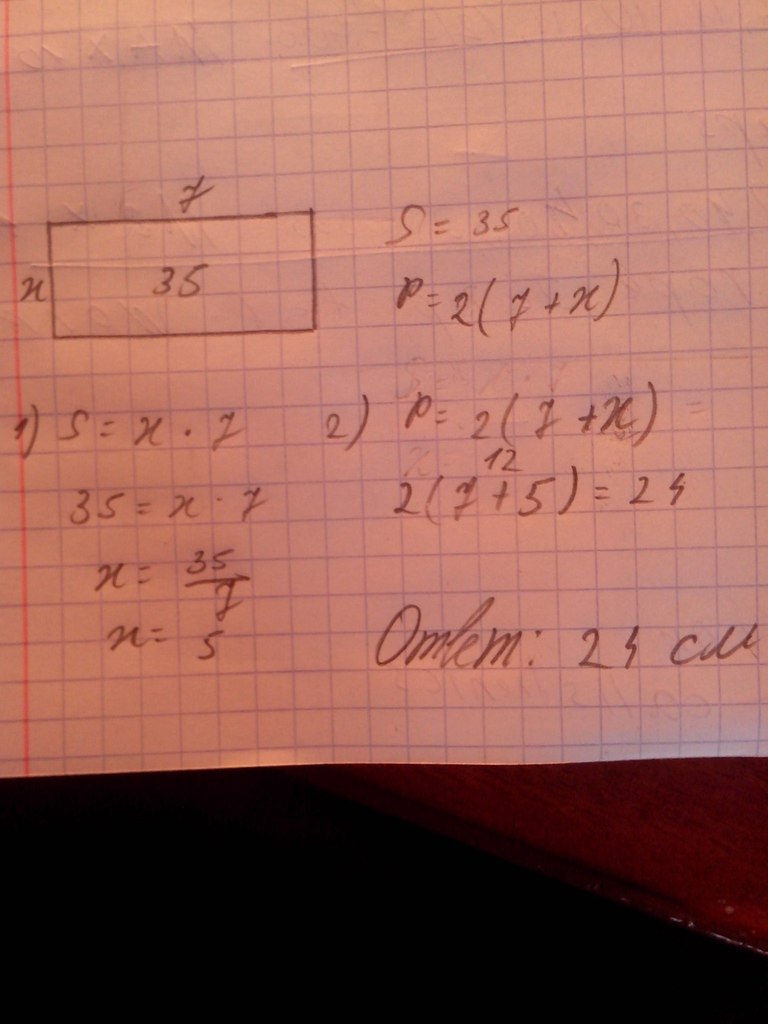 7
x 35
S = 35
P = 2(7 + x)
1) S = x · 7
35 = x · 7
x = 35/7
x = 5
2) P = 2(7 + x) =
12
2(7 + 5) = 24
Ответ: 24 см